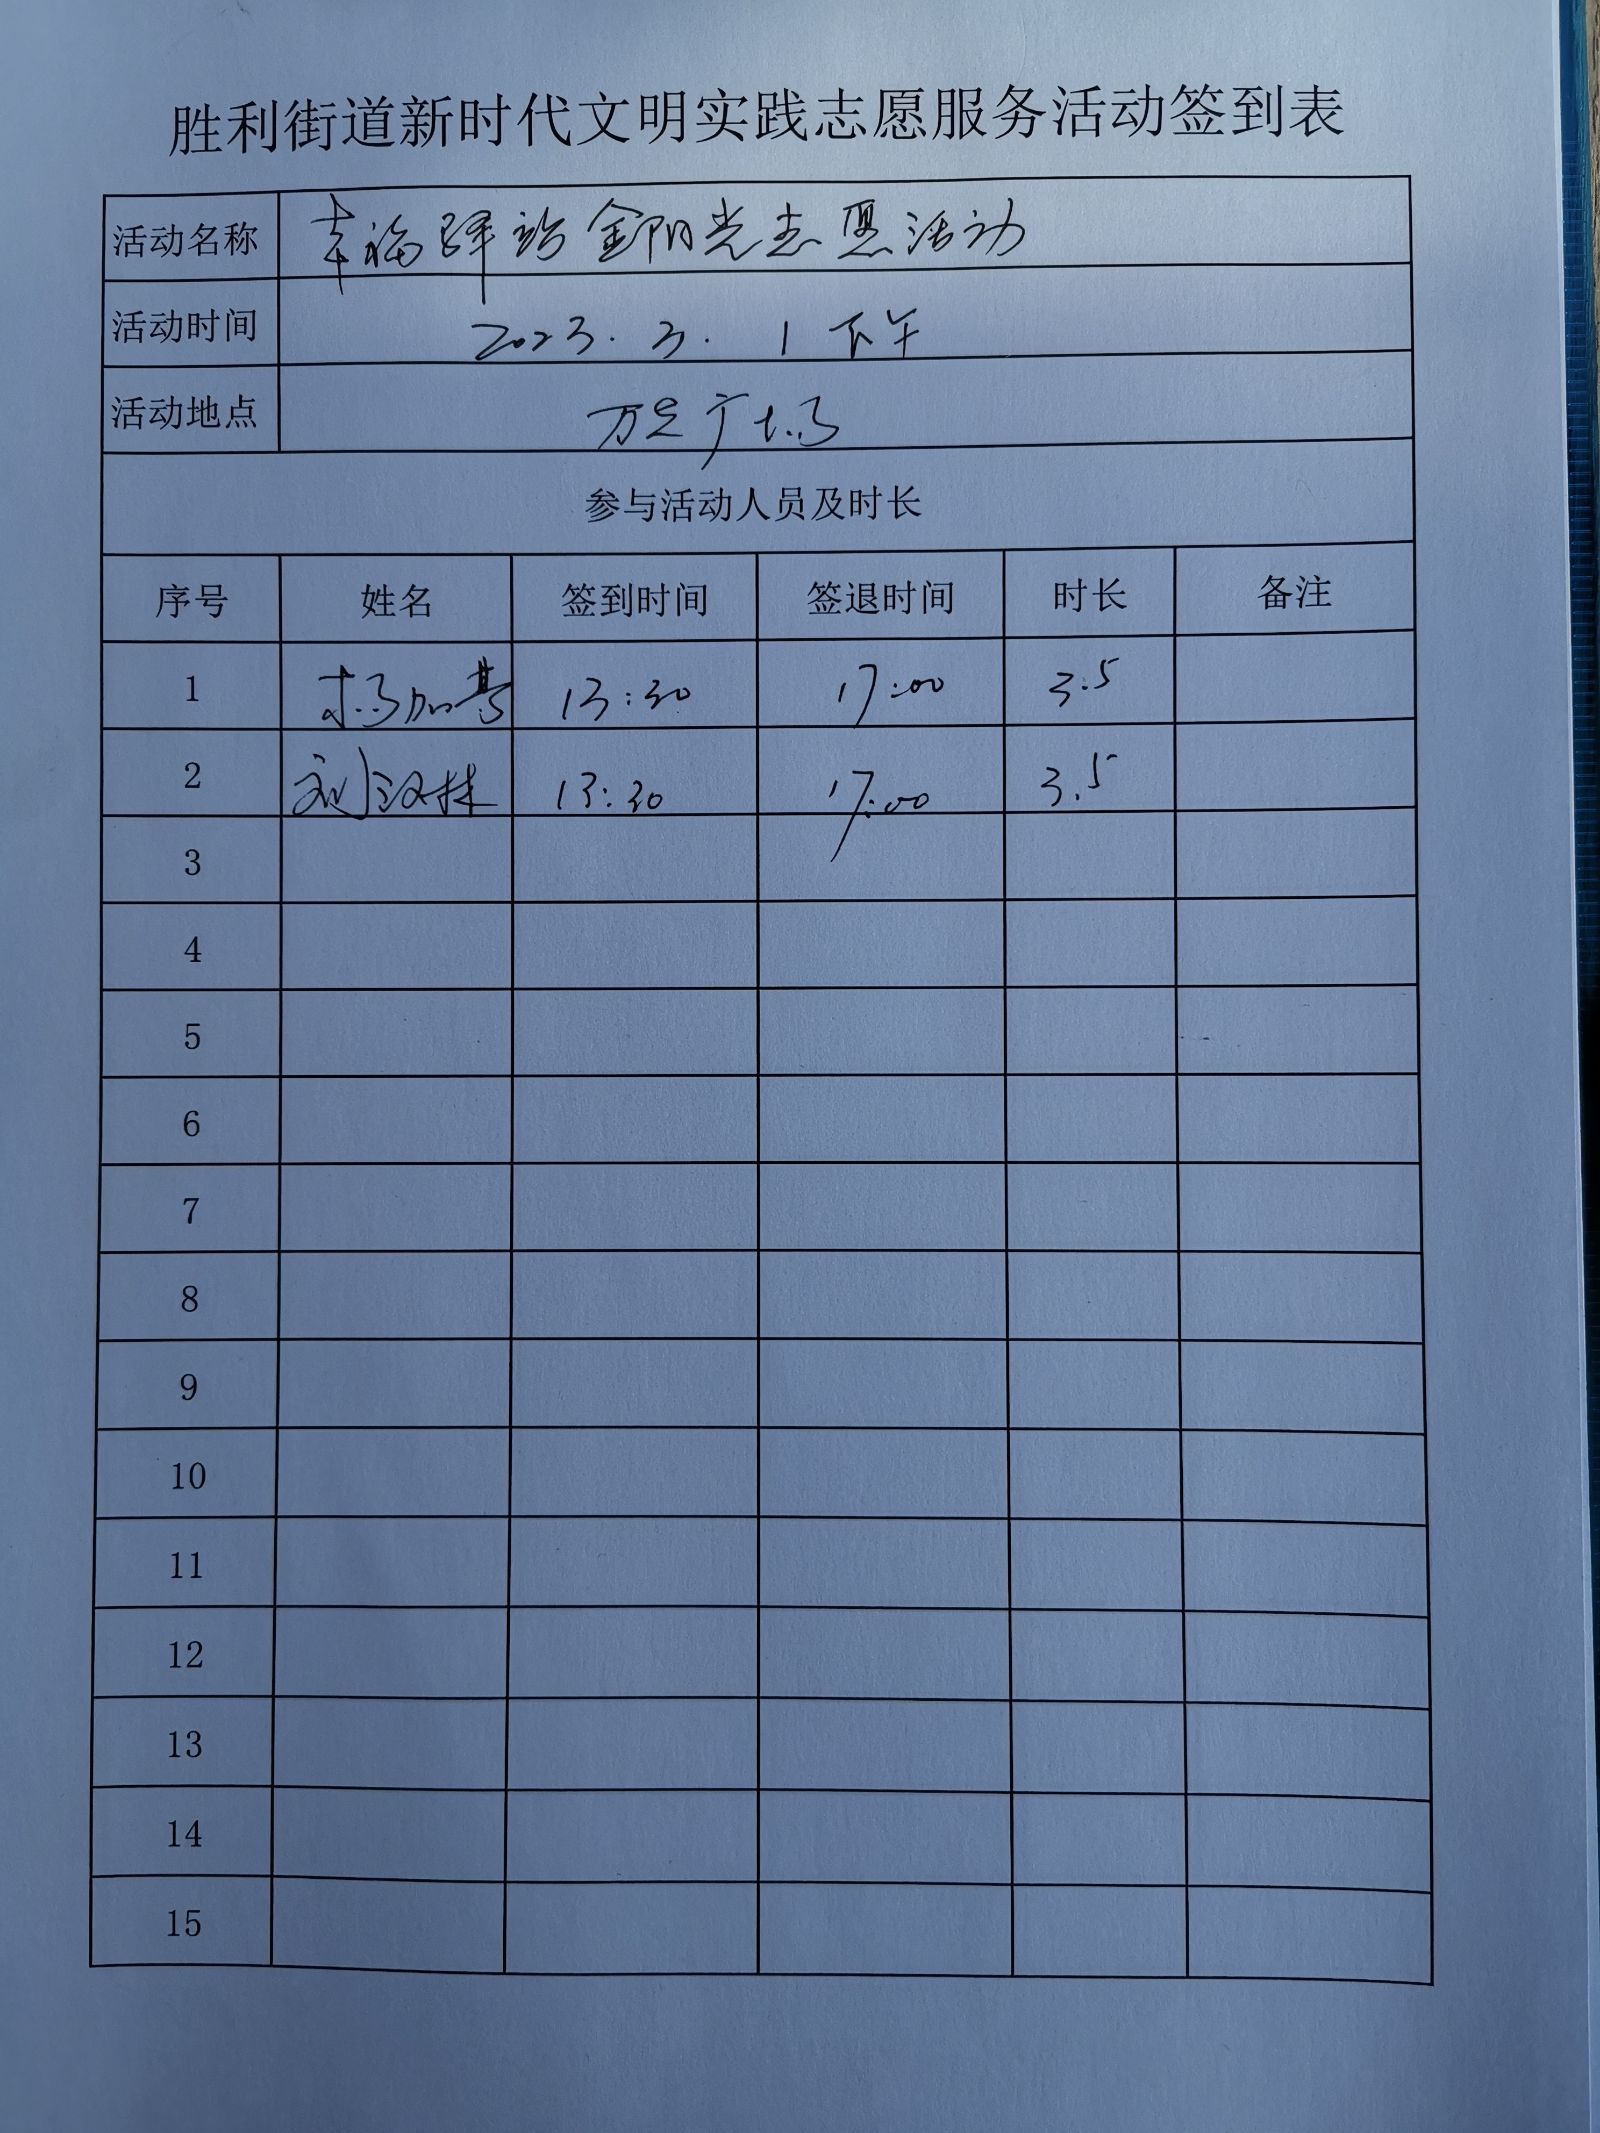 胜利街道新时代文明实践志愿服务活动签到表
活动名称 幸福驿站金阳光志愿活动
活动时间 2023.3.1下午
活动地点 万达广场
参与活动人员及时长
序号 姓名 签到时间 签退时间 时长 备注
1 13:30 17:00 3.5
2 刘汉林 13:30 17:00 3.5
3
4
5
6
7
8
9
10
11
12
13
14
15